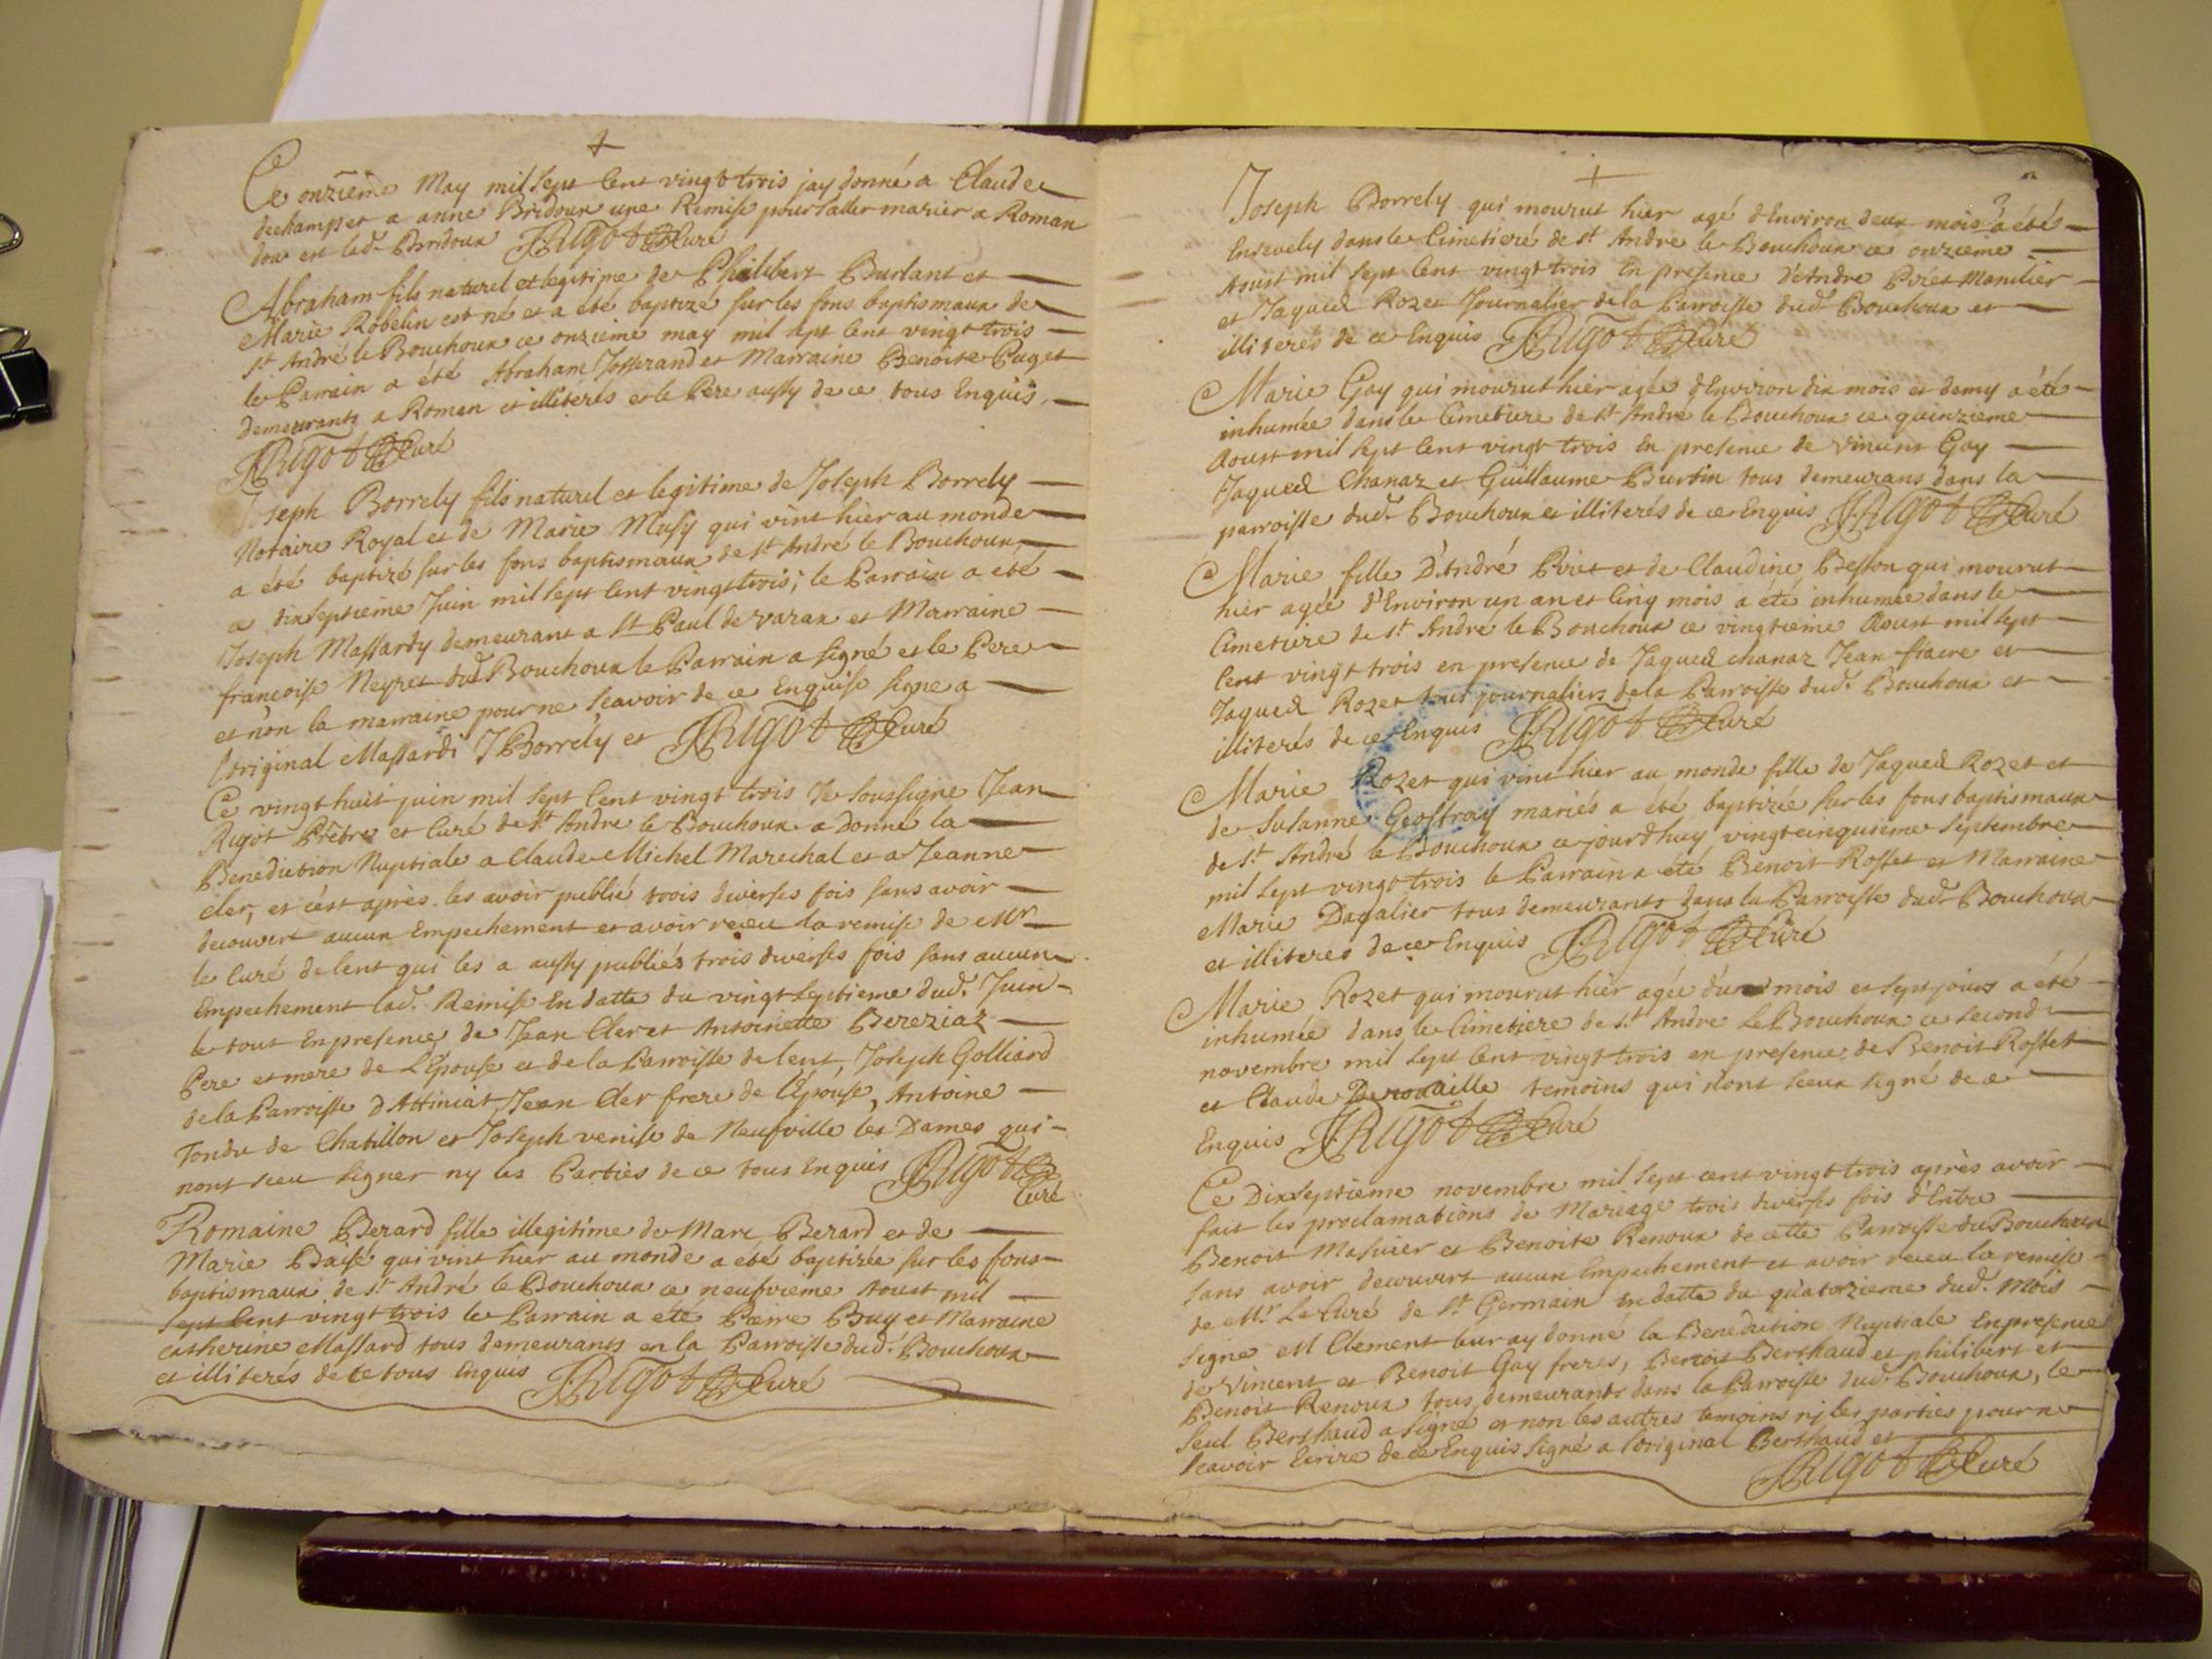 Ce onzieme May mil sept Cent vingt trois jay donné a Claude
dechamp et a anne Bridoux une Remise pour saller marier a Roman
dou est lad. Bridoux JRigot Curé
Abraham fils naturel et legitime de Philibert Burlant et
Marie Robelin est né et a été baptizé sur les fons baptismaux de
st André le Bouchoux ce onzieme may mil sept Cent vingt trois
le Parrain a été Abraham Josserand et Marraine Benoite Puget
demeurants a Roman et illiterés et le Pere aussy de ce tous Enquis
JRigot Curé
Joseph Borrely fils naturel et legitime de Joseph Borrely
Notaire Royal et de Marie Musy qui vint hier au monde
a été baptizé sur les fons baptismaux de st André le Bouchoux
ce dixseptieme Juin mil sept Cent vingt trois; le Parrain a été
Joseph Massardy demeurant a St Paul de varax et Marraine
françoise Neyret dud Bouchoux le Parrain a signé et le Pere
et non la marraine pour ne scavoir de ce Enquise signe a
loriginal Massardi J Borrely et JRigot Curé
Ce vingt huit juin mil sept Cent vingt trois Je soussigne Jean
Rigot Prêtre et Curé de st Andre le Bouchoux a donné la
Benediction Nuptiale a Claude Michel Marechal et a Jeanne
cler, et c'est après les avoir publié trois diverses fois sans avoir
decouvert aucun Empechement et avoir receu la remise de Mr
le Curé de lent qui les a aussy publiés trois diverses fois sans aucun
Empechement lad. Remise En datte du vingt septieme dud. Juin
le tout En presence de Jean Cler et Antoinette Bereziaz
Pere et mere de L'Epouse et de la Parroisse de lent, Joseph Golliard
de la Parroisse d'Attiniat, Jean Cler frere de l'Epouse, Antoine
Tondu de Chatillon et Joseph venise de Neufville les Dames qui
nont sceu signer ny les Parties de ce tous Enquis JRigot
Curé
Romaine Berard fille illegitime de Marc Berard et de
Marie Baisé qui vint hier au monde a eté baptizée sur les fons
baptismaux de st André le Bouchoux ce neufvieme Aoust mil
sept Cent vingt trois le Parrain a eté Pierre Buy et Marraine
catherine Massard tous demeurants en la Parroisse dud. Bouchoux
et illiterés de ce tous Enquis JRigot Curé
Joseph Borrely qui mourut hier agé d'Environ deux mois a été
Ensevely dans le Cimetiere de st Andre le Bouchoux ce onzieme
Aoust mil sept Cent vingt trois En presence d'Andre Piret Manilier
et Jaques Rozet Journalier de la Parroisse dud Bouchoux et
illiterés de ce Enquis JRigot Curé
Marie Gay qui mourut hier agée d'Environ dix mois et demy a été
inhumée dans le Cimetiere de st André le Bouchoux ce quinzieme
Aoust mil sept Cent vingt trois En presence de vincent Gay
Jaques Chanaz et Guillaume Burtin tous demeurans dans la
parroisse dud. Bouchoux et illiterés de ce Enquis JRigot Curé
Marie fille d'André Piret et de Claudine Besson qui mourut
hier agée d'Environ un an et Cinq mois a été inhumée dans le
Cimetiere de st André le Bouchoux ce vingtieme Aoust mil sept
Cent vingt trois en presence de Jaques chanaz Jean fiacre et
Jaques Rozet tous journaliers de la Parroisse dud. Bouchoux et
illiterés de ce Enquis JRigot Curé
Marie Rozet qui vint hier au monde fille de Jaques Rozet et
de Susanne Geoffray mariés a été baptizée sur les fons baptismaux
de st André le Bouchoux ce jourdhuy vingt cinquieme septembre
mil sept vingt trois le Parrain a été Benoit Rosset et Marraine
Marie Dagalier tous demeurants dans la Parroisse dud. Bouchoux
et illiteres de ce Enquis JRigot Curé
Marie Rozet qui mourut hier agée d'un mois et sept jours a été
inhumée dans le Cimetiere de st Andre Le Bouchoux ce second
novembre mil sept Cent vingt trois en presence de Benoit Rosset
et Claude Derouaille temoins qui nont sceux signé de ce
Enquis JRigot Curé
Ce Dixseptieme novembre mil sept cent vingt trois après avoir
fait les proclamations de Mariage trois diverses fois d'Entre
Benoit Masuier et Benoite Renoux de cette Parroisse du Bouchoux
sans avoir decouvert aucun Empechement et avoir receu la remise
de Mr. Le Curé de St Germain En datte du quatorzieme dud. Mois
signe M Clement leur ay donné la Benediction Nuptiale En presence
de Vincent et Benoit Gay freres, Benoit Berthaud et philibert et
Benoit Renoux tous demeurants dans la Parroisse dud. Bouchoux, le
seul Berthaud a signé et non les autres temoins ny les parties pour ne
scavoir Ecrire de ce Enquis Signé a loriginal Berthaud et
JRigot Curé